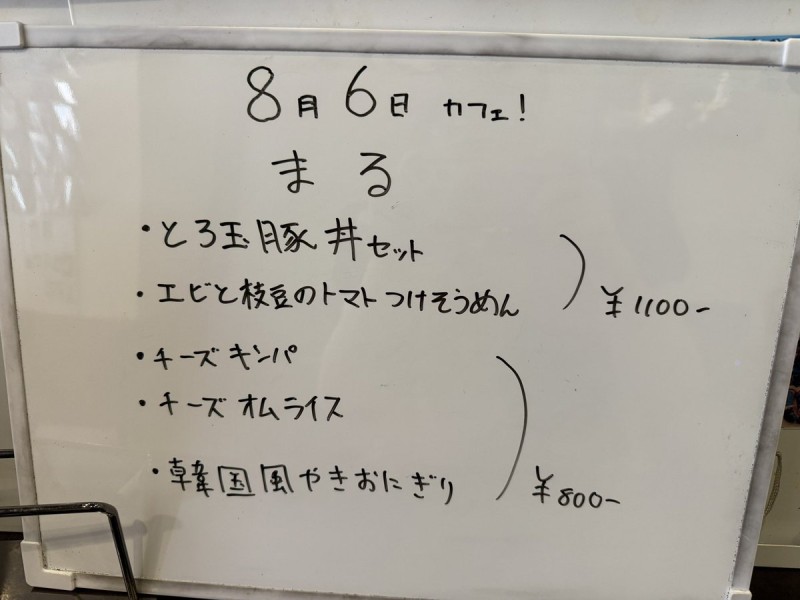 8月6日 カフェ!
まる
・とろ玉豚丼セット
・エビと枝豆のトマトつけそうめん
¥1100-
・チーズキンパ
・チーズオムライス
・韓国風やきおにぎり
¥800-